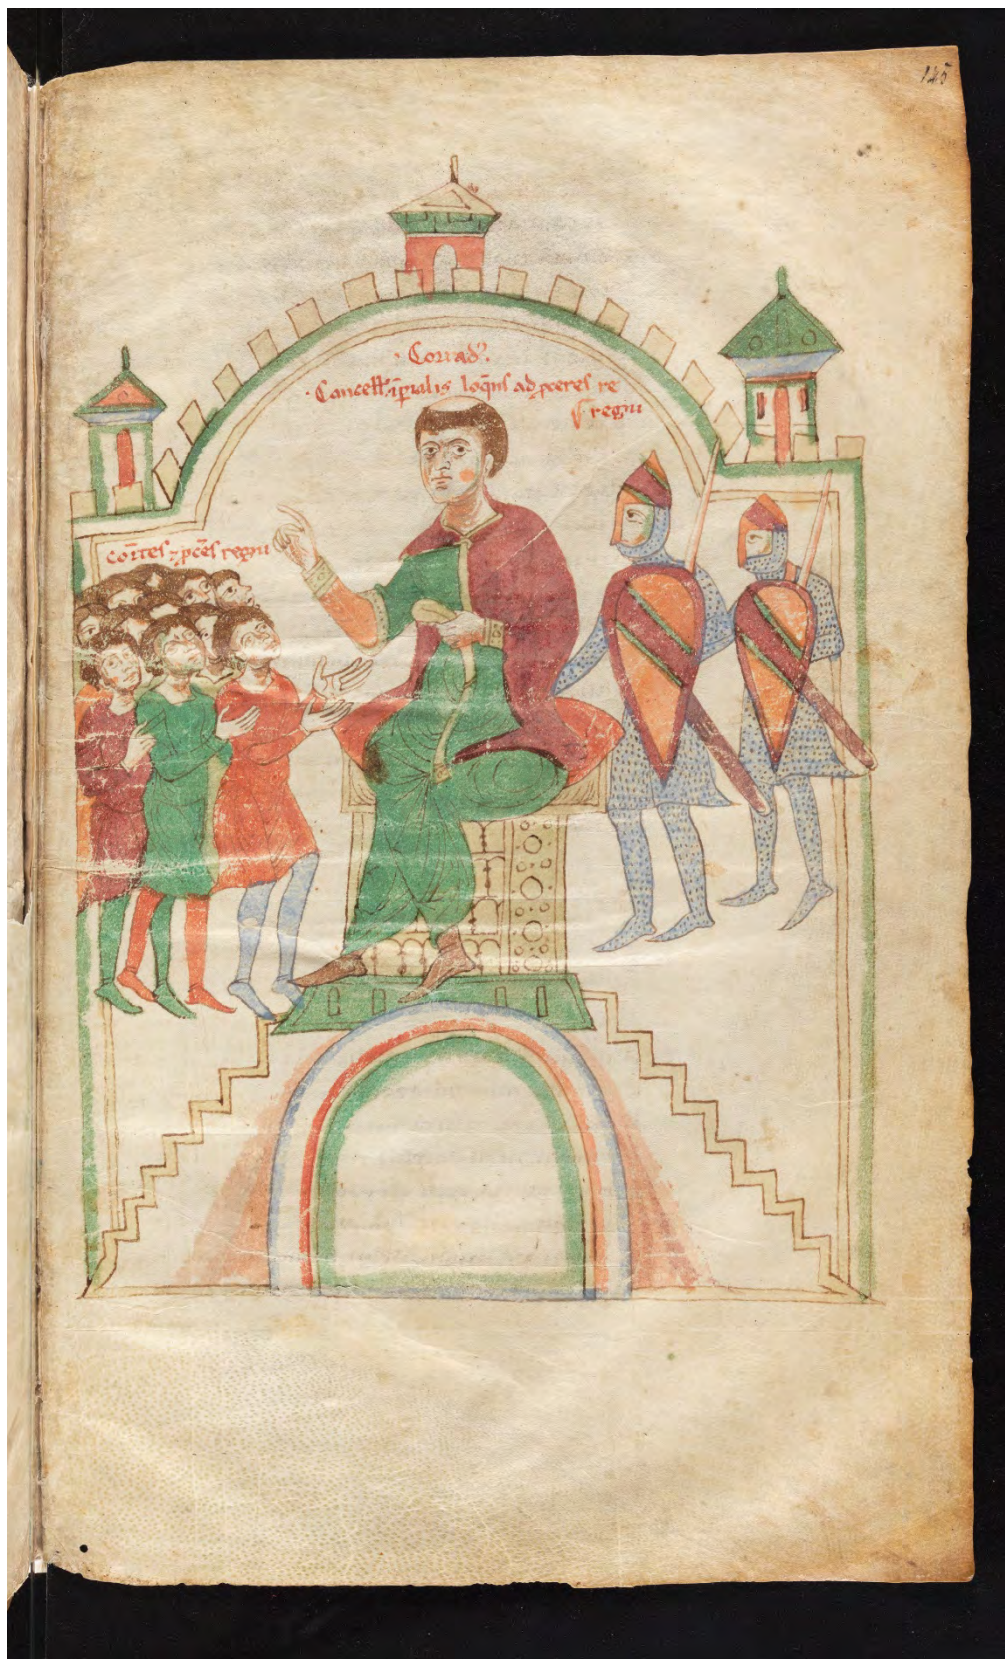 145
· Corrad⁹.
· Cancell̄. īp̄ialis loq̄ns ad ꝓceres re
regni
Comites ⁊ ꝓceˢ regni